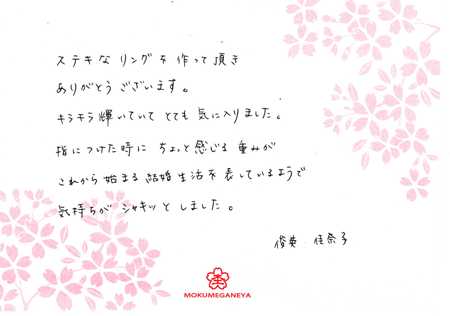 ステキなリングを作って頂き
ありがとうございます。
キラキラ輝いていてとても気に入りました。
指につけた時にちょっと感じる重みが
これから始まる結婚生活を表しているようで
気持ちがシャキッとしました。
俊英 佳奈子
MOKUMEGANEYA